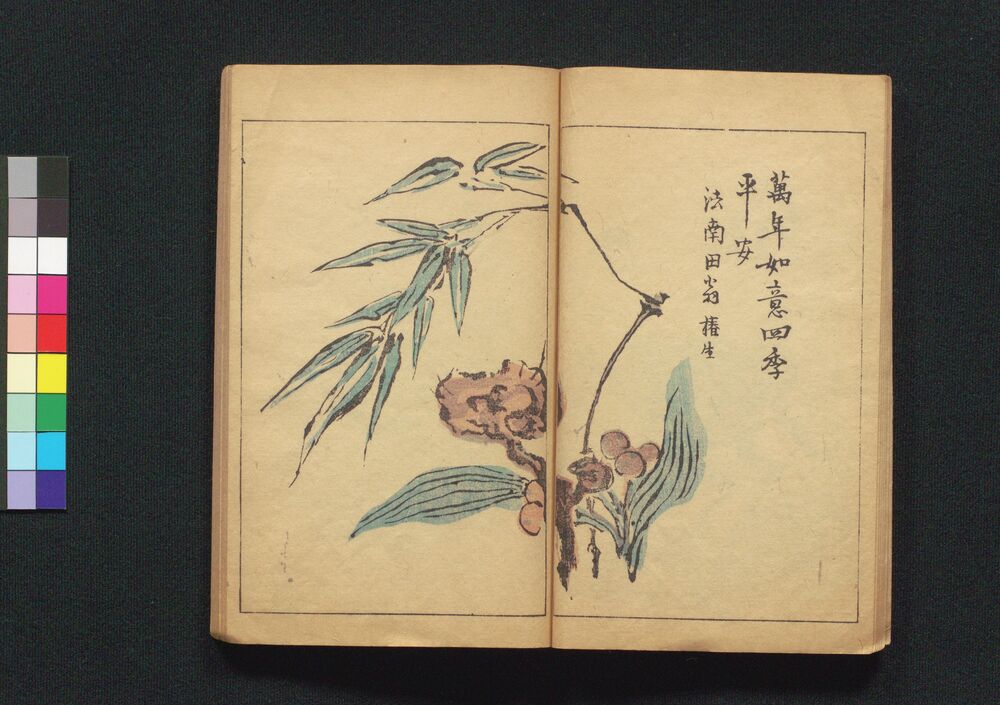 萬年如意四季
平安
法南田翁 椿生